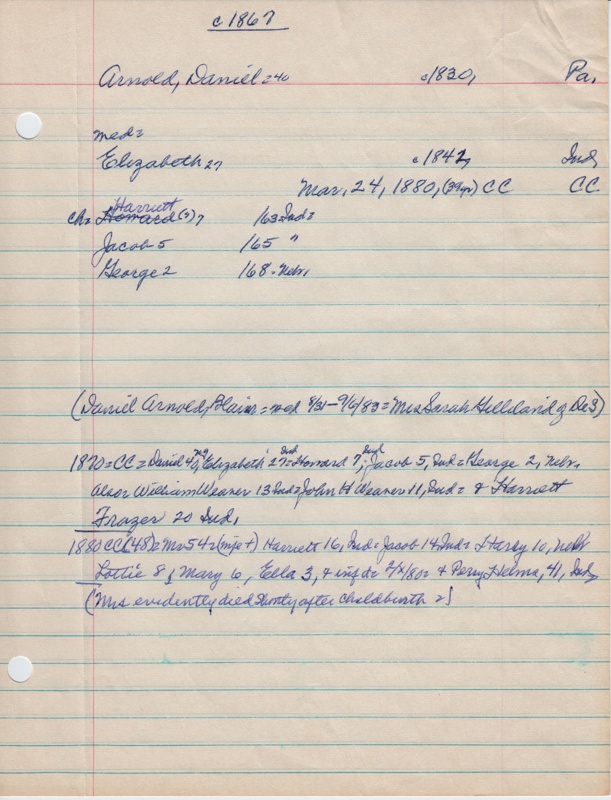 c1867
Arnold, Daniel=40 c1830, Pa.
med=
Elizabeth 27 c1842, Ind,
Mar, 24, 1880, (39yr) CC CC
Harriett
ch= Howard (?) 7 '63=Ind=
Jacob 5 '65 "
George 2 '68=Nebr.
(Daniel Arnold, Blair=med 8/31-9/6/83=Mrs Sarah of De3)
1870=CC=Daniel 40, Elizabeth 27=Ind=Howard 7, Ind, Jacob 5, Ind=George 2, Nebr.
also William Weaver 13 Ind=John H Weaver 11, Ind= & Harriett
Frazer 20 Ind,
1880 CC(48)=Mr 54=(mfe+) Harriett 16, Ind=Jacob 14 Ind= Harry 10, Nebr
Lottie 8, Mary 6, Ella 3, & inf d= /80= & Perry Helms, 41, Ind,
(Mrs evidently died shortly after childbirth ?)